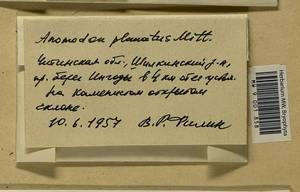 Anomodon planatus Mitt.
Читинская обл., Шилкинский р-н,
пр. берег Ингоды в 4 км от
На каменистом открытом
склоне.
10.6.1957 В.Р. Филин
Herbarium MW, Bryophyta